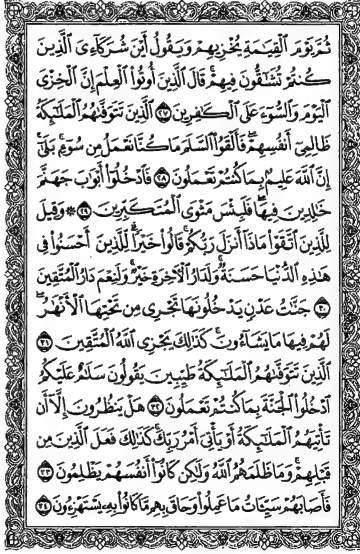 ثُمَّ يَوْمَ الْقِيَامَةِ يُخْزِيهِمْ وَيَقُولُ أَيْنَ شُرَكَاءِيَ الَّذِينَ
كُنتُمْ تُشَاقُّونَ فِيهِمْ قَالَ الَّذِينَ أُوتُوا الْعِلْمَ إِنَّ الْخِزْيَ
الْيَوْمَ وَالسُّوءَ عَلَى الْكَافِرِينَ ٢٧ الَّذِينَ تَتَوَفَّاهُمُ الْمَلَائِكَةُ
ظَالِمِي أَنفُسِهِمْ فَأَلْقَوُا السَّلَمَ مَا كُنَّا نَعْمَلُ مِن سُوءٍ بَلَى
إِنَّ اللَّهَ عَلِيمٌ بِمَا كُنتُمْ تَعْمَلُونَ ٢٨ فَادْخُلُوا أَبْوَابَ جَهَنَّمَ
خَالِدِينَ فِيهَا فَلَبِئْسَ مَثْوَى الْمُتَكَبِّرِينَ ٢٩ ۞ وَقِيلَ
لِلَّذِينَ اتَّقَوْا مَاذَا أَنزَلَ رَبُّكُمْ قَالُوا خَيْرًا لِّلَّذِينَ أَحْسَنُوا فِي
هَٰذِهِ الدُّنْيَا حَسَنَةٌ وَلَدَارُ الْآخِرَةِ خَيْرٌ وَلَنِعْمَ دَارُ الْمُتَّقِينَ
٣٠ جَنَّاتُ عَدْنٍ يَدْخُلُونَهَا تَجْرِي مِن تَحْتِهَا الْأَنْهَارُ
لَهُمْ فِيهَا مَا يَشَاءُونَ كَذَٰلِكَ يَجْزِي اللَّهُ الْمُتَّقِينَ ٣١
الَّذِينَ تَتَوَفَّاهُمُ الْمَلَائِكَةُ طَيِّبِينَ يَقُولُونَ سَلَامٌ عَلَيْكُمُ
ادْخُلُوا الْجَنَّةَ بِمَا كُنتُمْ تَعْمَلُونَ ٣٢ هَلْ يَنظُرُونَ إِلَّا أَن
تَأْتِيَهُمُ الْمَلَائِكَةُ أَوْ يَأْتِيَ أَمْرُ رَبِّكَ كَذَٰلِكَ فَعَلَ الَّذِينَ مِن
قَبْلِهِمْ وَمَا ظَلَمَهُمُ اللَّهُ وَلَٰكِن كَانُوا أَنفُسَهُمْ يَظْلِمُونَ ٣٣
فَأَصَابَهُمْ سَيِّئَاتُ مَا عَمِلُوا وَحَاقَ بِهِم مَّا كَانُوا بِهِ يَسْتَهْزِءُونَ ٣٤